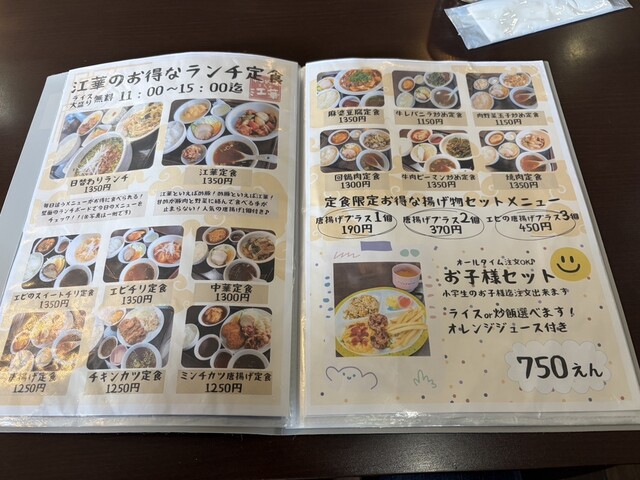 江華のお得なランチ定食
ライス大盛り無料 11:00〜15:00迄
江華
日替わりランチ
1350円
毎日違うメニューがお得に食べられる!
店頭のランチボードで今日のメニューを
チェック!!(※写真は一例です)
江華定食
1350円
止まらない!人気の唐揚げ1個付き♪
エビのスイートチリ定食
1350円
エビチリ定食
1350円
中華定食
1300円
唐揚げ定食
1250円
チキンカツ定食
1250円
ミンチカツ唐揚げ定食
1250円
麻婆豆腐定食
1350円
牛レバニラ炒め定食
1150円
肉野菜玉子炒め定食
1150円
回鍋肉定食
1350円
牛肉ピーミン炒め定食
1350円
焼肉定食
1350円
定食限定お得な揚げ物セットメニュー
唐揚げプラス1個
190円
唐揚げプラス2個
370円
エビの唐揚げプラス3個
450円
オールタイム注文OK♪
お子様セット
小学生のお子様迄注文出来ます
ライスor炒飯選べます!
オレンジジュース付き
750えん